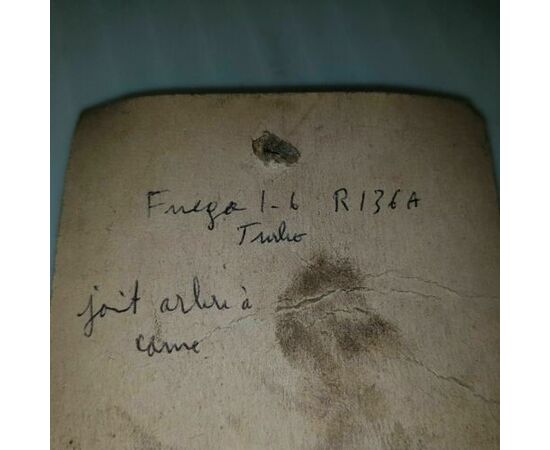 Fuego 1-6 R136A
Turbo
joit arbre à
came